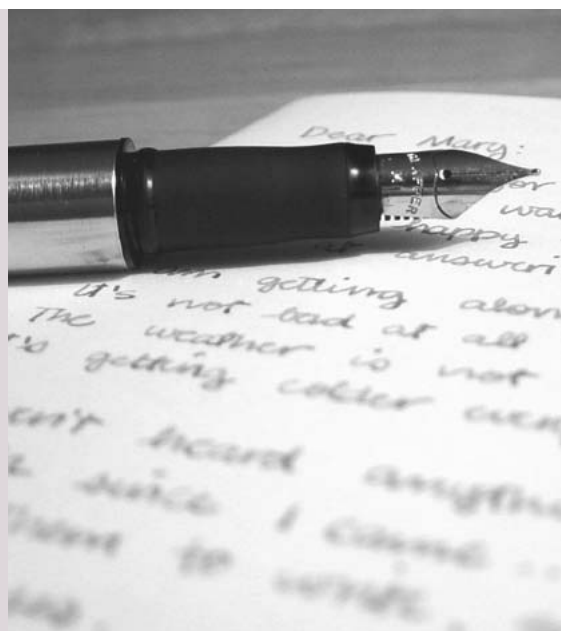 Dear Mary:
or
happy
answeri
am getting alon
It's not bad at all
The weather is not
getting colder every
heard anythin
since I came ..
to write